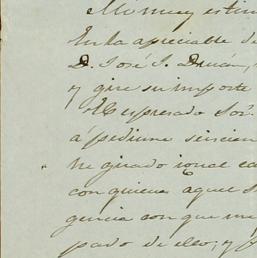 Mi muy estim
En la apreciable de
D. José J. Durán,
y gire su importe
El espresado Sor.
á pedirme seiscien
he girado igual ca
con quien aquel S
gencia con que me
pado de ello; y